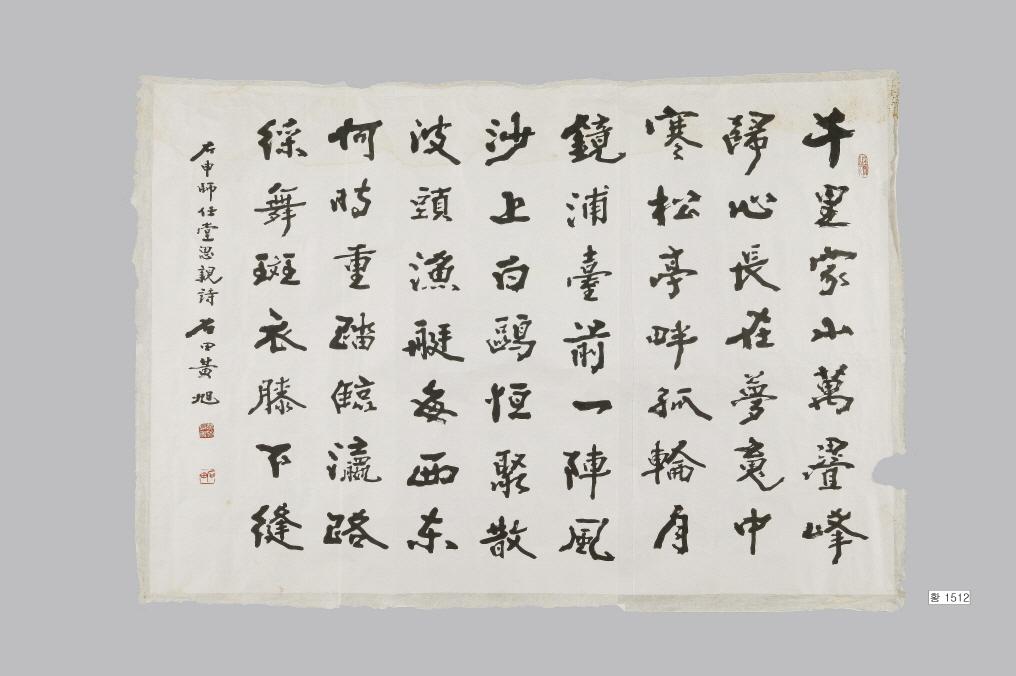 千里家山萬疊峰
歸心長在夢魂中
寒松亭畔孤輪月
鏡浦臺前一陣風
沙上白鷗恒聚散
波頭漁艇每西東
何時重踏臨瀛路
綵舞斑衣膝下縫
右申師任堂思親詩 石田黃旭
황 1512